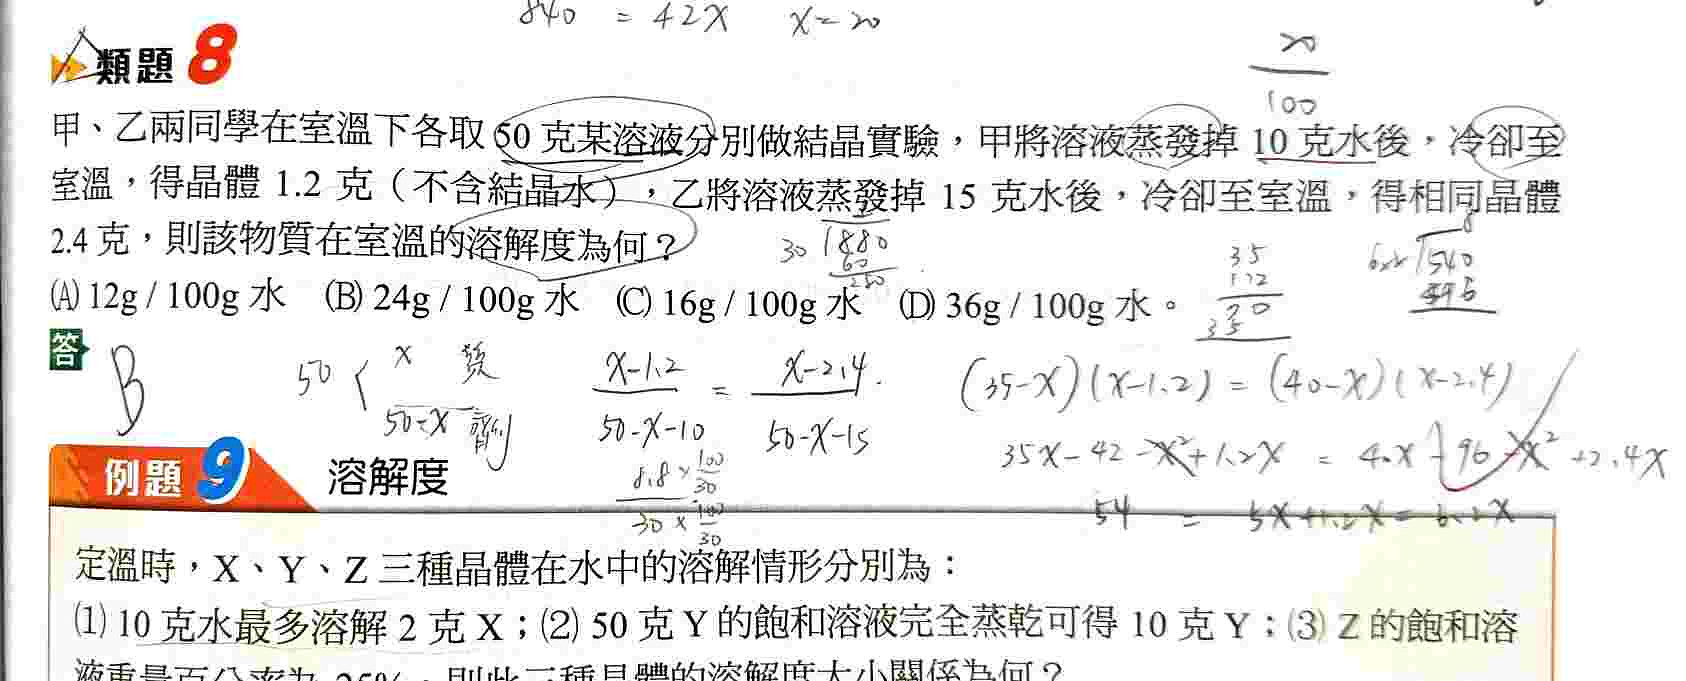 840 = 42X X=20
類題 8
20
100
甲、乙兩同學在室溫下各取 50 克某溶液分別做結晶實驗，甲將溶液蒸發掉 10 克水後，冷卻至
室溫，得晶體 1.2 克（不含結晶水），乙將溶液蒸發掉 15 克水後，冷卻至室溫，得相同晶體
2.4 克，則該物質在室溫的溶解度為何？
30 880
60
35
540
(A) 12g / 100g 水 (B) 24g / 100g 水 (C) 16g / 100g 水 (D) 36g / 100g 水。
答 B
50 X 質 X-1.2 = X-2.4 (35-X)(X-1.2) = (40-X)(X-2.4)
50-X 劑 50-X-10 50-X-15
35X-42-X²+1.2X = 40X-96-X²+2.4X
例題 9 溶解度
8.8 × 100
30
30 × 100
30
54 = 5X+1.2X = 6.2X
定溫時，X、Y、Z 三種晶體在水中的溶解情形分別為：
(1) 10 克水最多溶解 2 克 X；(2) 50 克 Y 的飽和溶液完全蒸乾可得 10 克 Y；(3) Z 的飽和溶
液重量百分率為 25%，則此三種晶體的溶解度大小關係為何？